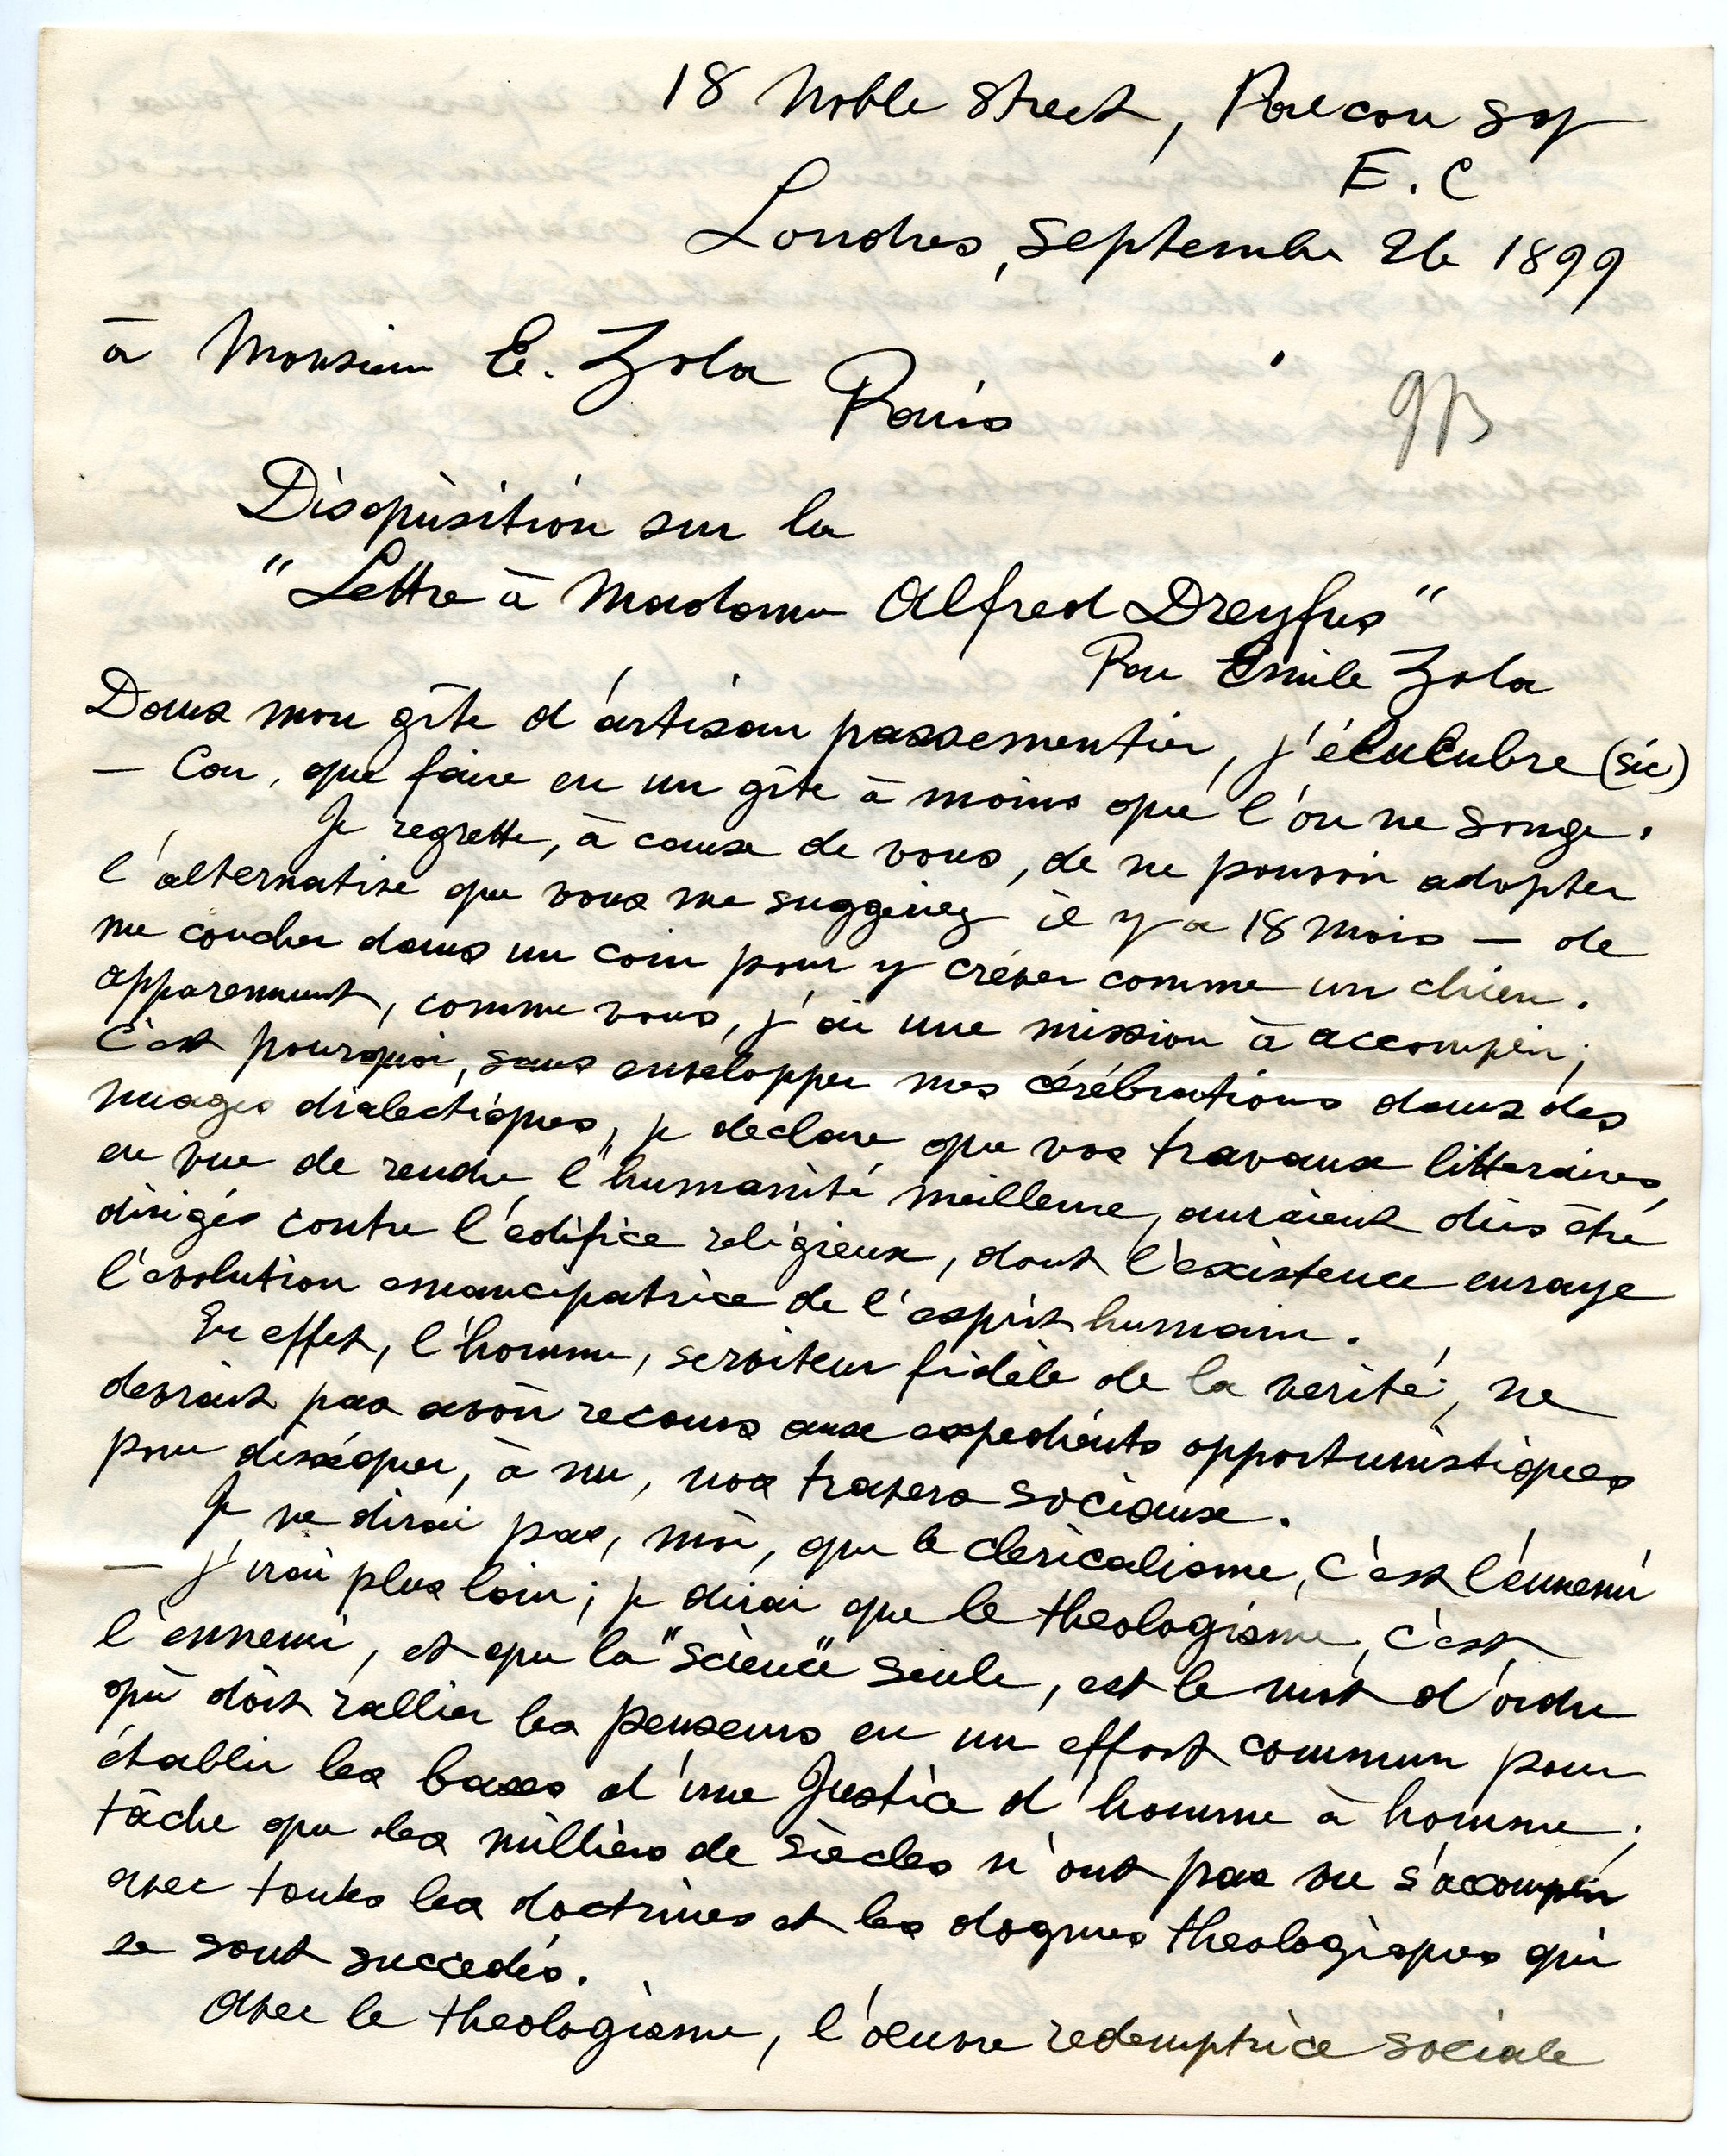 18 Noble Street, Falcon Sq
E. C
Londres, Septembre 26 1899
à Monsieur E. Zola
Paris
Disquisition sur la
"Lettre à Madame Alfred Dreyfus"
Par Emile Zola
Dans mon gîte d'artisan passementier, j'élucubre (sic)
— Car, que faire en un gîte à moins que l'on ne songe.
Je regrette, à cause de vous, de ne pouvoir adopter
l'alternative que vous me suggeriez il y a 18 mois — de
me coucher dans un coin pour y créver comme un chien.
Apparemment, comme vous, j'ai une mission à accomplir;
C'est pourquoi, sans envelopper mes cérébrations dans des
nuages dialectiques, je declare que vos travaux litteraires,
en vue de rendre l'humanité meilleure, auraient dûs être
dirigés contre l'édifice religieux, dont l'existence enraye
l'evolution emancipatrice de l'esprit humain.
En effet, l'homme, serviteur fidèle de la verité, ne
devrait pas avoir recours aux expedients opportunistiques
pour disséquer, à nu, nos travers sociaux.
Je ne dirai pas, moi, que le clericalisme, c'est l'ennemi
— j'irai plus loin; je dirai que le theologisme, c'est
l'ennemi, et que la "Science" seule, est le mot d'ordre
qui doit rallier les penseurs en un effort commun pour
établir les bases d'une Justice d'homme à homme;
tâche que les milliers de siècles n'ont pas vu s'accomplir
avec toutes les doctrines et les dogmes theologiques qui
se sont succedés.
Avec le theologisme, l'oeuvre redemptrice sociale